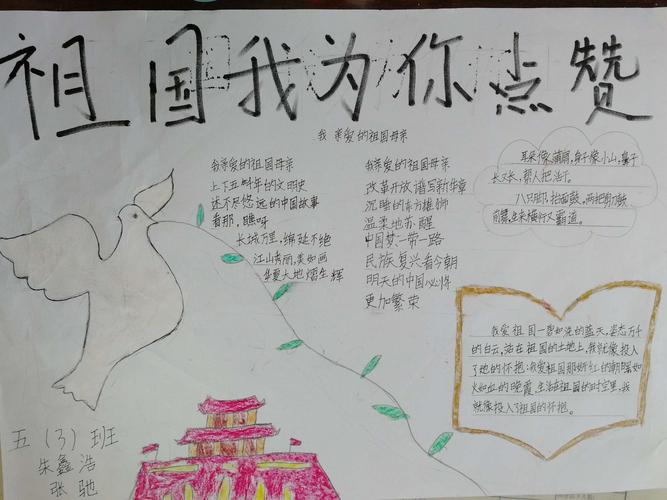 祖国我为你点赞
我亲爱的祖国母亲
我亲爱的祖国母亲
上下五千年的文明史
述不尽悠远的中国故事
看那,瞧呀
长城万里,绵延不绝
江山秀丽,美如画
华夏大地熠生辉
我亲爱的祖国母亲
改革开放谱写新华章
沉睡的东方雄狮
温柔地苏醒
中国梦一带一路
民族复兴看今朝
明天的中国必将
更加繁荣
耳朵像蒲扇,身子像小山,鼻子
长又长,帮人把活干。
八只脚,抬面鼓,两把剪刀鼓
前舞,生来横行又霸道。
我爱祖国一碧如洗的蓝天,姿态万千
的白云,站在祖国的土地上,我就像投入
了她的怀抱;我爱祖国那娇红的朝阳如
火如血的晚霞,生活在祖国的时空里,我
就像投入了祖国的怀抱。
五(3)班
朱鑫浩
张驰